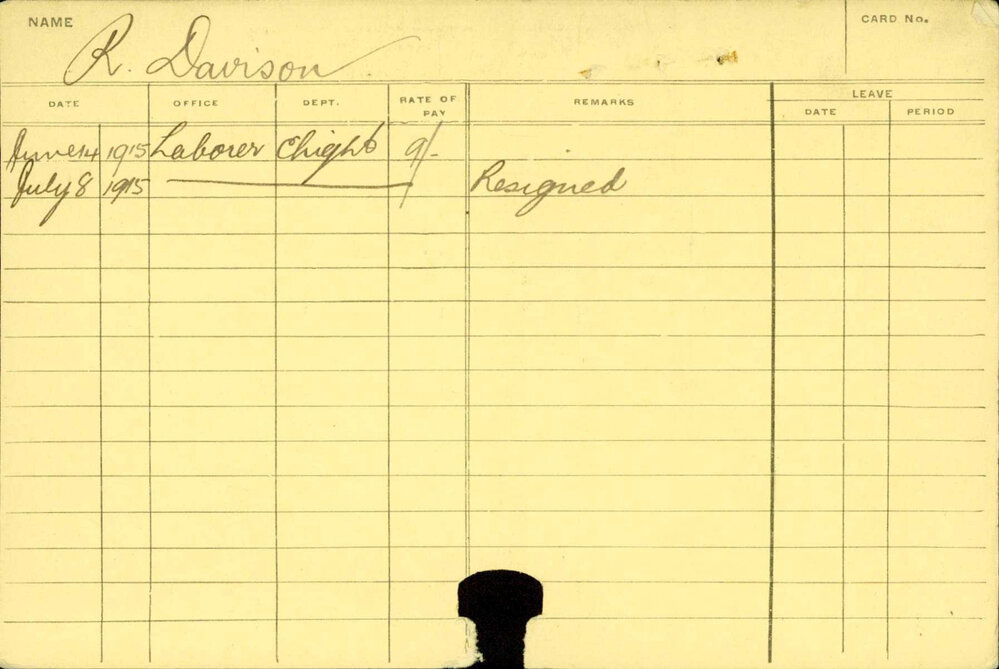 NAME R. Davison CARD No.
DATE OFFICE DEPT. RATE OF PAY REMARKS LEAVE
DATE PERIOD
June 14 1915 Laborer 9/-
July 8 1915 Resigned